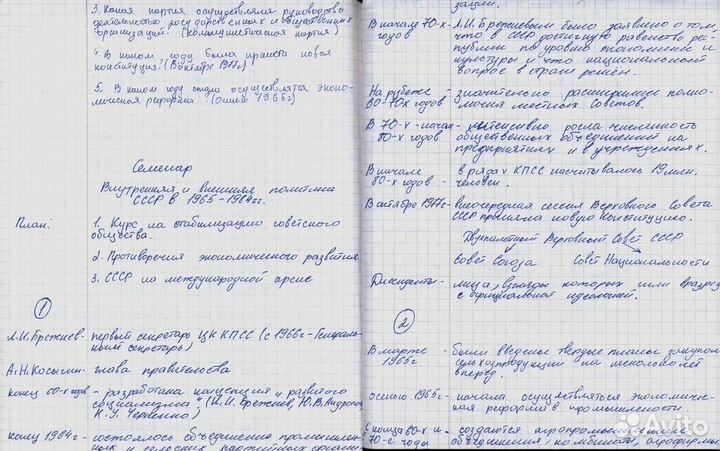 3. Какая партия осуществляла руководство
деятельностью государственных и общественных
организаций? (коммунистическая партия)
4. В каком году была принята новая
конституция? (В октябре 1977г)
5. В каком году стала осуществляться эконо-
мическая реформа? (осенью 1965г)
Семинар
Внутренняя и внешняя политика
СССР в 1965-1984гг.
План:
1. Курс на стабилизацию советского
общества.
2. Противоречия экономического развития
3. СССР на международной арене
1
Л.И.Брежнев - первый секретарь ЦК КПСС (с 1966г - Генераль-
ный секретарь)
А.Н.Косыгин - глава правительства
конец 60-х годов - разработана концепция "развитого
социализма" (Л.И.Брежнев, Ю.В.Андропов,
К.У.Черненко)
конец 1964г - состоялось объединение промышлен-
ных и сельских партийных
зации.
В начале 70-х годов - Л.И.Брежневым было заявлено о том,
что в СССР достигнуто равенство рес-
публик по уровню экономики и
культуры и что национальный
вопрос в стране решён.
На рубеже 60-70х годов - значительно расширились полно-
мочия местных Советов.
В 70-х - начале 80-х годов - интенсивно росла численность
общественных объединений на
предприятиях и в учреждениях.
В начале 80-х годов - в рядах КПСС насчитывалось 19 млн.
человек.
В октябре 1977г - внеочередная сессия Верховного Совета
СССР приняла новую Конституцию.
Двухпалатный Верховный Совет СССР
Совет Союза Совет Национальности
Диссиденты - лица, взгляды которых шли вразрез
с официальной идеологией.
2
В марте 1965г - были введены твердые планы закупок
сельхозпродукции на несколько лет
вперед.
осенью 1965г - начала осуществляться экономичес-
кая реформа в промышленности.
С конца 60-х и 70-е годы - создаются агропромышленные
объединения, комбинаты, агрофирмы
Avito